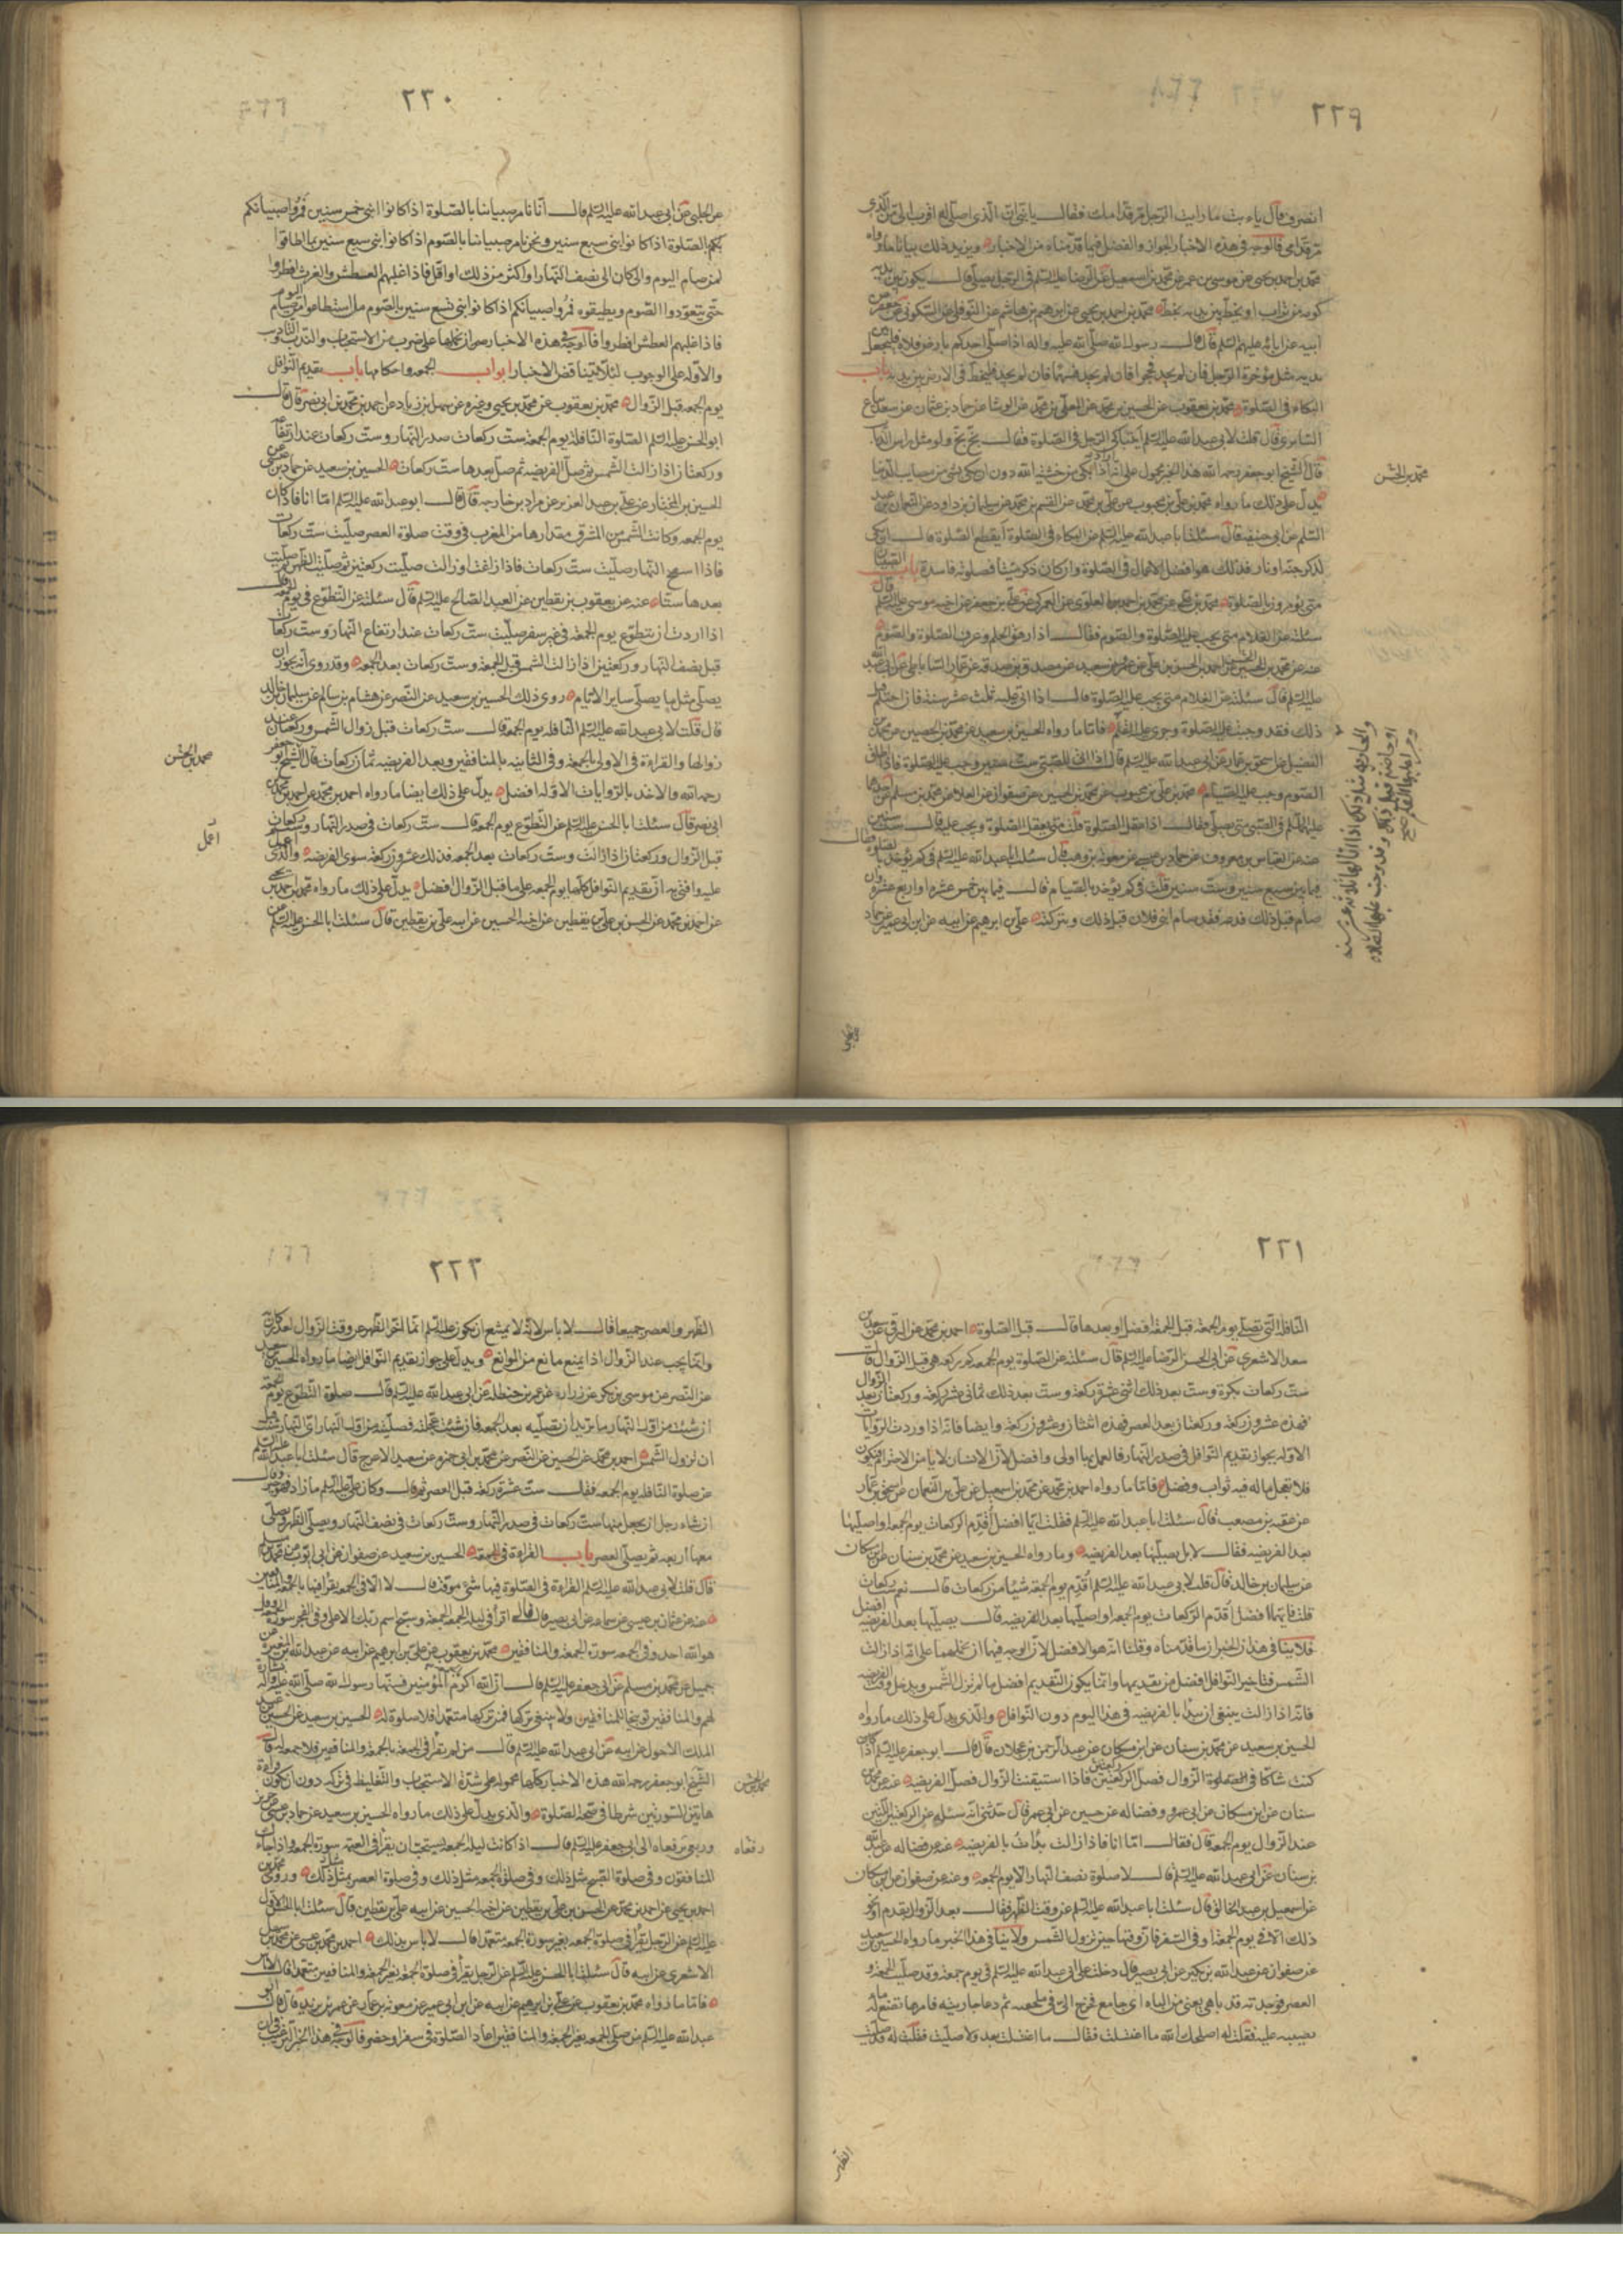 ٢٢٩
انصرف قال يا ابت ما رايت الرجل مر قدامك فقال يا بنى ان الذى اصلى له اقرب الى من الذى
مر قدامى فالوجه فى هذه الاخبار الجواز والفضل فيما قدمناه من الاخبار ويزيد ذلك بيانا ما رواه
محمد بن احمد بن يحيى عن موسى بن عمر عن محمد بن اسمعيل عن الرضا عليه السلم فى الرجل يصلى قال يكون بين يديه
كومة من تراب او يخط بين يديه بخط محمد بن احمد بن يحيى عن ابرهيم بن هاشم عن النوفلى عن السكونى عن جعفر عن
ابيه عن ابائه عليهم السلم قال قال رسول الله صلى الله عليه واله اذا صلى احدكم بارض فلاة فليجعل بين
يديه مثل مؤخرة الرحل فان لم يجد فحجرا فان لم يجد فسهما فان لم يجد فليخط فى الارض بين يديه باب
البكاء فى الصلوة محمد بن يعقوب عن الحسين بن محمد عن المعلى بن محمد عن الوشا عن حماد بن عثمان عن سعيد بياع
السابرى قال قلت لابى عبد الله عليه السلم ايتباكى الرجل فى الصلوة فقال بخ بخ ولو مثل راس الذباب
قال الشيخ ابو جعفر رحمه الله هذا الخبر محمول على انه اذا بكى من خشية الله دون ان يبكى لشئ من مصايب الدنيا
يدل على ذلك ما رواه محمد بن على بن محبوب عن على بن محمد عن القسم بن محمد عن سليمان بن داود عن النعمان بن عبد
السلم عن ابى حنيفة قال سئلت ابا عبد الله عليه السلم عن البكاء فى الصلوة ايقطع الصلوة قال ان بكى
لذكر جنة او نار فذلك هو افضل الاعمال فى الصلوة وان كان ذكر ميتا فصلوته فاسدة باب الصبيان
متى يؤمرون بالصلوة محمد بن على عن محمد بن احمد العلوى عن العمركى عن على بن جعفر عن اخيه موسى عليه السلم قال
سئلته عن الغلام متى يجب عليه الصلوة والصوم فقال اذا راهق الحلم وعرف الصلوة والصوم
عنه عن محمد بن الحسين عن احمد بن الحسن بن على عن عمرو بن سعيد عن مصدق بن صدقة عن عمار الساباطى عن ابى عبد الله
عليه السلم قال سئلته عن الغلام متى يجب عليه الصلوة قال اذا اتى عليه ثلث عشر سنة فان احتلم قبل
ذلك فقد وجبت عليه الصلوة وجرى عليه القلم فاما ما رواه الحسين بن سعيد عن محمد بن الحصين عن محمد بن
الفضيل عن اسحق بن عمار عن ابى عبد الله عليه السلم قال اذا اتى للصبى ست سنين وجب عليه الصلوة فاذا اطاق
الصوم وجب عليه الصيام محمد بن على بن محبوب عن محمد بن الحسين عن صفوان عن العلاء عن محمد بن مسلم عن احدهما
عليهما السلم فى الصبى متى يصلى فقال اذا عقل الصلوة قلت متى يعقل الصلوة ويجب عليه قال لست سنين
عنه عن العباس بن معروف عن حماد بن عيسى عن معوية بن وهب قال سئلت ابا عبد الله عليه السلم فى كم يؤخذ بالصلوة فقال
فيما بين سبع سنين وست سنين قلت فى كم يؤخذ بالصيام قال فيما بين خمس عشرة او اربع عشرة وان
صام قبل ذلك فدعه فقد صام ابنى فلان قبل ذلك وتركته على بن ابرهيم عن ابيه عن ابن ابى عمير عن حماد
محمد بن الحسن
والجارية مثل ذلك اذا اتى لها ثلاثة عشر سنة
او حاضت قبل ذلك فقد وجبت عليها الصلاة
وجرى عليها القلم صح
٢٢٠
عن الحلبى عن ابى عبد الله عليه السلم قال انا نامر صبياننا بالصلوة اذا كانوا ابنى خمس سنين فمروا صبيانكم
بالصلوة اذا كانوا بنى سبع سنين ونحن نامر صبياننا بالصوم اذا كانوا بنى سبع سنين بما اطاقوا
من صيام اليوم وان كان الى نصف النهار او اكثر من ذلك او اقل فاذا غلبهم العطش والغرث افطروا
حتى يتعودوا الصوم ويطيقوه فمروا صبيانكم اذا كانوا بنى تسع سنين بالصوم ما استطاعوا من صيام اليوم
فاذا غلبهم العطش افطروا فالوجه فى هذه الاخبار ان نحملها على ضرب من الاستحباب والندب والتاديب
والاوله على الوجوب لئلا يتناقض الاخبار ابواب الجمعة واحكامها باب تقديم النوافل
يوم الجمعه قبل الزوال محمد بن يعقوب عن محمد بن يحيى وغيره عن سهل بن زياد عن احمد بن محمد بن ابى نصر قال قال
ابو الحسن عليه السلم الصلوة النافلة يوم الجمعة ست ركعات صدر النهار وست ركعات عند ارتفاعه
وركعتان اذا زالت الشمس ثم صل الفريضه ثم صل بعدها ست ركعات الحسين بن سعيد عن حماد بن عيسى عن
الحسين بن المختار عن على بن عبد العزيز عن مراد بن خارجه قال قال ابو عبد الله عليه السلم اما انا فاذا كان
يوم الجمعه وكانت الشمس من المشرق مقدارها من المغرب فى وقت صلوة العصر صليت ست ركعات
فاذا انتفخ النهار صليت ست ركعات فاذا زاغت او زالت صليت ركعتين ثم صليت الظهر ثم صليت
بعدها ستا عنه عن يعقوب بن يقطين عن العبد الصالح عليه السلم قال سئلته عن التطوع فى يوم الجمعة قال
اذا اردت ان تتطوع يوم الجمعة فى غير سفر صليت ست ركعات عند ارتفاع النهار وست ركعات
قبل نصف النهار وركعتين اذا زالت الشمس قبل الجمعة وست ركعات بعد الجمعه وقد روى انه يجوز ان
يصلى مثل ما يصلى ساير الايام روى ذلك الحسين بن سعيد عن النضر عن هشام بن سالم عن سليمان بن خالد
قال قلت لابى عبد الله عليه السلم النافله يوم الجمعة قال ست ركعات قبل زوال الشمس وركعتان عند
زوالها والقراءة فى الاولى بالجمعة وفى الثانيه بالمنافقين وبعد الفريضه ثمان ركعات قال الشيخ ابو جعفر
رحمه الله والاخذ بالروايات الاوله افضل يدل على ذلك ايضا ما رواه احمد بن محمد عن احمد بن محمد بن
ابى نصر قال سئلت ابا الحسن عليه السلم عن التطوع يوم الجمعة قال ست ركعات فى صدر النهار وست ركعات
قبل الزوال وركعتان اذا زالت وست ركعات بعد الجمعه فذلك عشرون ركعة سوى الفريضه والذى اعمل
عليه وافتى به ان تقديم النوافل كلها يوم الجمعه على ما قبل الزوال افضل يدل على ذلك ما رواه محمد بن احمد بن يحيى
عن احمد بن محمد عن الحسن بن على بن يقطين عن اخيه الحسين عن ابيه على بن يقطين قال سئلت ابا الحسن عليه السلم عن
محمد بن الحسن
اعمل
٢٢١
النافلة التى تصلى يوم الجمعة قبل الجمعة افضل او بعدها قال قبل الصلوة احمد بن محمد عن البرقى عن سعد بن
سعد الاشعرى عن ابى الحسن الرضا عليه السلم قال سئلته عن الصلوة يوم الجمعه كم ركعه هى قبل الزوال قال
ست ركعات بكرة وست بعد ذلك اثنى عشرة ركعة وست بعد ذلك ثمانى عشر ركعة وركعتان بعد الزوال
فهذه عشرون ركعة وركعتان بعد العصر فهذه اثنتان وعشرون ركعة وايضا فانه اذا وردت الروايات
الاوله بجواز تقديم النوافل فى صدر النهار فالعمل بها اولى وافضل لان الانسان لا يامن الاخترام فيكون
فلا تعجل ما له فيه ثواب وفضل فاما ما رواه احمد بن محمد عن محمد بن اسمعيل عن على بن النعمان عن اسحق بن عمار
عن عقبه بن مصعب قال سئلت ابا عبد الله عليه السلم فقلت ايما افضل اقدم الركعات يوم الجمعه او اصليها
بعد الفريضه فقال لا بل تصليها بعد الفريضه وما رواه الحسين بن سعيد عن محمد بن سنان عن ابن مسكان
عن سليمان بن خالد قال قلت لابى عبد الله عليه السلم اقدم يوم الجمعة شيئا من ركعات قال نعم ست ركعات
قلت فايهما افضل اقدم الركعات يوم الجمعه او اصليها بعد الفريضه قال تصليها بعد الفريضه افضل
فلا ينافى هذان الخبران ما قدمناه وقلنا انه هو الافضل لان الوجه فيهما ان نحملهما على انه اذا زالت
الشمس فتاخير النوافل افضل من تقديمها وانما يكون التقديم افضل ما لم تزل الشمس ويدخل وقت الفريضه
فانه اذا زالت ينبغى ان يبدا بالفريضه فى هذا اليوم دون النوافل والذى يدل على ذلك ما رواه
الحسين بن سعيد عن محمد بن سنان عن ابن مسكان عن عبد الرحمن بن عجلان قال قال ابو جعفر عليه السلم اذا
كنت شاكا فى الزوال فصل الركعتين فاذا استيقنت الزوال فصل الفريضه عنه عن محمد بن
سنان عن ابن مسكان عن ابى عمرو وفضاله عن حسين عن ابى عمر قال حدثنى انه سئله عن الركعتين اللتين
عند الزوال يوم الجمعة قال فقال اما انا فاذا زالت بدأت بالفريضه عنه عن فضاله عن عبد الله
بن سنان عن ابى عبد الله عليه السلم قال لا صلوة نصف النهار الا يوم الجمعه وعنه عن صفوان عن ابن مسكان
عن اسمعيل بن عبد الخالق قال سئلت ابا عبد الله عليه السلم عن وقت الظهر فقال بعد الزوال بقدم او نحو
ذلك الا فى يوم الجمعة او فى السفر فان وقتها حين تزول الشمس ولا ينافى هذا الخبر ما رواه الحسين بن سعيد
عن صفوان عن عبد الله بن بكير عن ابى بصير قال دخلت على ابى عبد الله عليه السلم فى يوم جمعة وقد صليت الجمعة و
العصر فوجدته قد باهى يعنى من الباه اى جامع فخرج الى فى ملحفه ثم دعا جاريته فامرها تضع له ماء
تصبه عليه فقلت له اصلحك الله ما اغتسلت فقال ما اغتسلت بعد ولا صليت فقلت له قد صليت
الظهر
٢٢٢
الظهر والعصر جميعا قال لا باس لانه لا يمتنع ان يكون عليه السلم انما اخر الظهر عن وقت الزوال لعذر كان
وانما يجب عند الزوال اذا لم يمنع مانع من الموانع ويدل على جواز تقديم النوافل ايضا ما رواه الحسين بن سعيد
عن النضر عن موسى بن بكر عن زراره عن عمر بن حنظله عن ابى عبد الله عليه السلم قال صلوة التطوع يوم الجمعة
ان شئت من اول النهار ما تريد ان تصليه بعد الجمعه فان شئت عجلته فصليته من اول النهار اى النهار شئت قبل
ان تزول الشمس احمد بن محمد عن الحسين عن النضر عن محمد بن ابى حمزه عن سعيد الاعرج قال سئلت ابا عبد الله عليه السلم
عن صلوة النافله يوم الجمعه فقال ست عشرة ركعة قبل العصر ثم قال وكان على عليه السلم يقول ما زاد فهو خير وقال
ان شاء رجل ان يجعل منها ست ركعات فى صدر النهار وست ركعات فى نصف النهار ويصلى الظهر ويصلى
معها اربعه ثم يصلى العصر باب القراءة فى الجمعة الحسين بن سعيد عن صفوان عن ابى ايوب عن محمد بن مسلم
قال قلت لابى عبد الله عليه السلم القراءة فى الصلوة فيها شئ موقت قال لا الا فى الجمعه يقرأ فيها بالجمعة والمنافقين
عنه عن عثمان بن عيسى عن سماعه عن ابى بصير قال قال اقرأ فى ليلة الجمعة الجمعة وسبح اسم ربك الاعلى وفى الفجر سورة الجمعة وقل
هو الله احد وفى الجمعه سورة الجمعة والمنافقين محمد بن يعقوب عن على بن ابرهيم عن ابيه عن عبد الله بن المغيرة عن
جميل عن محمد بن مسلم عن ابى جعفر عليه السلم قال ان الله اكرم بالجمعة المؤمنين فسنها رسول الله صلى الله عليه واله بشارة
لهم والمنافقين توبيخا للمنافقين ولا ينبغى تركها فمن تركها متعمدا فلا صلوة له الحسين بن سعيد عن الحسين بن عبد
الملك الاحول عن ابيه عن ابى عبد الله عليه السلم قال من لم يقرأ فى الجمعة بالجمعة والمنافقين فلا جمعة له قال
الشيخ ابو جعفر رحمه الله هذه الاخبار كلها محموله على شدة الاستحباب والتغليظ فى تركه دون ان يكون قراءة
هاتين السورتين شرطا فى صحة الصلوة والذى يدل على ذلك ما رواه الحسين بن سعيد عن حماد بن عيسى عن حريز
وربعى رفعاه الى ابى جعفر عليه السلم قال اذا كانت ليلة الجمعه يستحب ان يقرأ فى العتمه سورة الجمعه واذا جاءك
المنافقون وفى صلوة الصبح مثل ذلك وفى صلوة الجمعه مثل ذلك وفى صلوة العصر مثل ذلك وروى محمد بن
احمد بن يحيى عن احمد بن محمد عن الحسن بن على بن يقطين عن اخيه الحسين عن ابيه على بن يقطين قال سئلت ابا الحسن الاول
عليه السلم عن الرجل يقرأ فى صلوة الجمعه بغير سورة الجمعه متعمدا قال لا باس بذلك احمد بن محمد بن عيسى عن محمد بن سهل
الاشعرى عن ابيه قال سئلت ابا الحسن عليه السلم عن الرجل يقرأ فى صلوة الجمعة بغير الجمعة والمنافقين متعمدا قال لا باس
فاما ما رواه محمد بن يعقوب عن على بن ابرهيم عن ابيه عن ابن ابى عمير عن معوية بن عمار عن عمر بن يزيد قال قال ابو
عبد الله عليه السلم من صلى الجمعه بغير الجمعة والمنافقين اعاد الصلوة فى سفر او حضر فالوجه فى هذا الخبر الترغيب فى ان
محمد بن الحسن
رفعاه